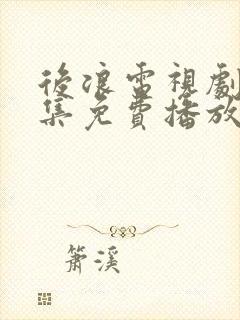 後浪電視劇
集免費播放
簫溪